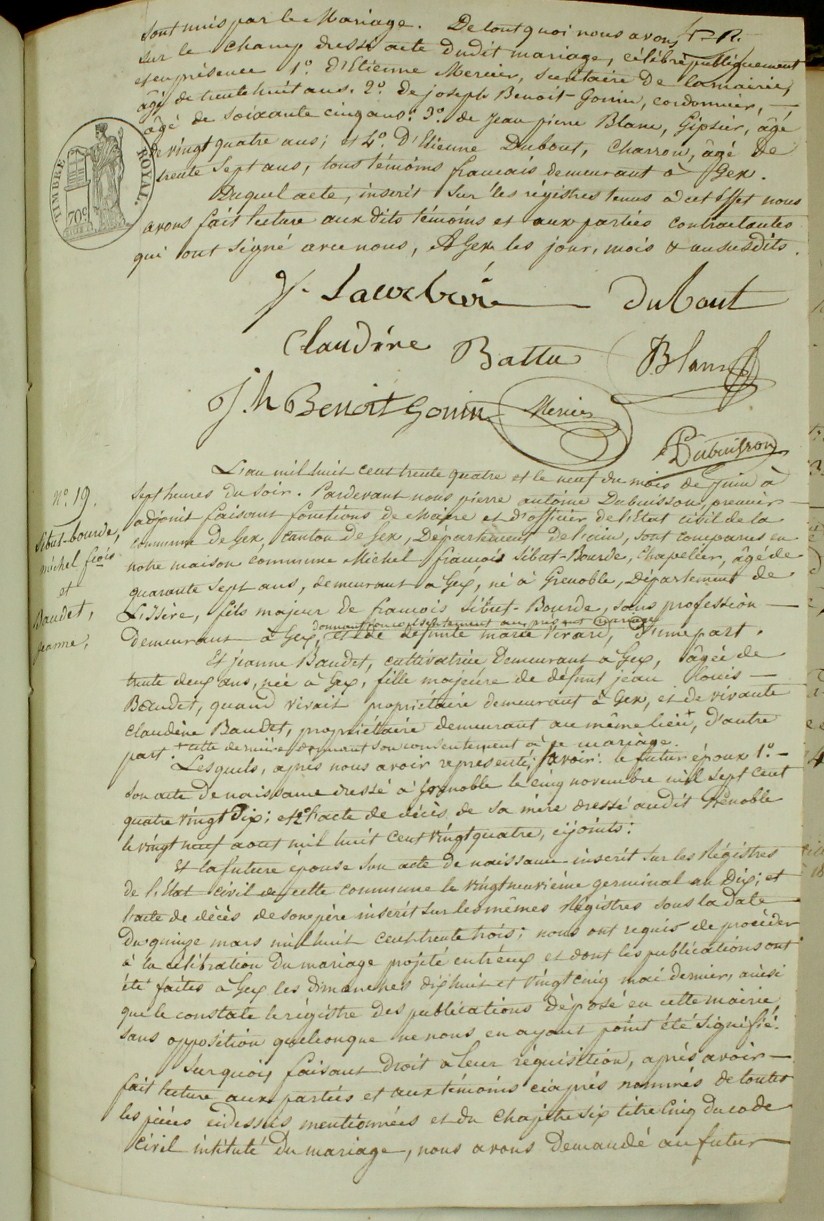 sont unis par le Mariage. De tout quoi nous avons
sur le champ dressé acte dudit mariage, célébré publiquement
et en présence 1º. d'Etienne Mercier, secrétaire de la mairie,
âgé de trente huit ans. 2º. de joseph Benoit-Gonin, cordonnier, —
âgé de soixante cinq ans. 3º. de Jean pierre Blanc, Gipsier, âgé
de vingt quatre ans; et 4º. d'Etienne Dubout, Charron, âgé de
trente sept ans, tous témoins français demeurant à Gex.
Duquel acte, inscrit sur les régistres tenus à cet effet nous
avons fait lecture aux dits témoins et aux parties contractantes
qui ont signé avec nous, A Gex les jour, mois & an susdits.
TIMBRE ROYAL.
70c
Dubout
Claudine Battu Blanc
Jh Benoit Gonin Mercier
Dubuisson
Nº. 19.
Sibut-bourde,
michel fçois
et
Baudet,
jeanne,
L'an mil huit cent trente quatre et le neuf du mois de Juin à
sept heures du soir. Pardevant nous pierre antoine Dubuisson, premier —
adjoint faisant fonctions de Maire et d'officier de l'Etat civil de la
commune de Gex, canton de Gex, Département de l'ain, sont comparus en
notre maison commune Michel françois Sibut-Bourde, Chapelier, âgé de
quarante sept ans, demeurant à Gex, né à Grenoble, département de
L'issère, fils majeur de françois Sibut-Bourde, sans profession —
donnant son consentement au présent mariage
demeurant à Gex, et de défunte marie Girard, d'une part.
Et jeanne Baudet, cultivatrice demeurant à Gex, âgée de
trente deux ans, née à Gex, fille majeure de défunt jean Louis —
Baudet, quand vivait propriétaire demeurant à Gex, et de vivante
claudine Baudet, propriétaire demeurant au même lieu, + d'autre
part. + cette dernière donnant son consentement à ce mariage.
Lesquels, après nous avoir représenté, savoir: le futur époux 1º. —
son acte de naissance dressé à Grenoble le cinq novembre mil sept cent
quatre vingt dix; et 2º l'acte de décès de sa mère dressé audit Grenoble
le vingt neuf aout mil huit cent vingt quatre, cijoints:
Et la future épouse son acte de naissance inscrit sur les Régistres
de l'Etat civil de cette commune le vingt neuvième germinal an Dix; et
l'acte de décès de son père inscrit sur les mêmes Régistres sous la date —
Du quinze mars mil huit cent trente trois; nous ont requis de procéder
à la célébration du mariage projeté entr'eux et dont les publications ont
été faites à Gex les dimanches dix huit et vingt cinq mai dernier, ainsi
que le constate le régistre des publications déposé en cette mairie,
sans opposition quelconque ne nous en ayant point été signifié.
Sur quoi, faisant Droit à leur réquisition, après avoir —
fait lecture aux parties et aux témoins ciaprès nommés de toutes
les pièces cidessus mentionnées et du chapitre six titre cinq du code
civil intitulé du mariage, nous avons demandé au futur —